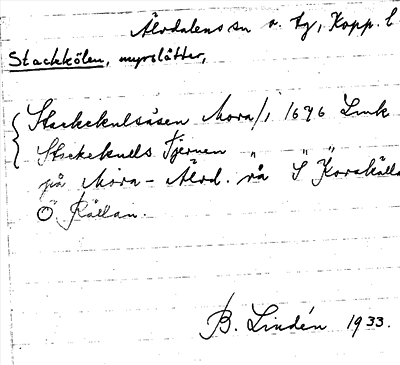 Älvdalens sn o. tg, Kopp. l
Stackkölen, myrslåtter,
Stackekulsåsen Mora/1 1696 Lmk
Stackekulls Tjernen " "
på Mora-Älvd. rå S Korskälla
Ö Källan.
B. Lindén 1933.